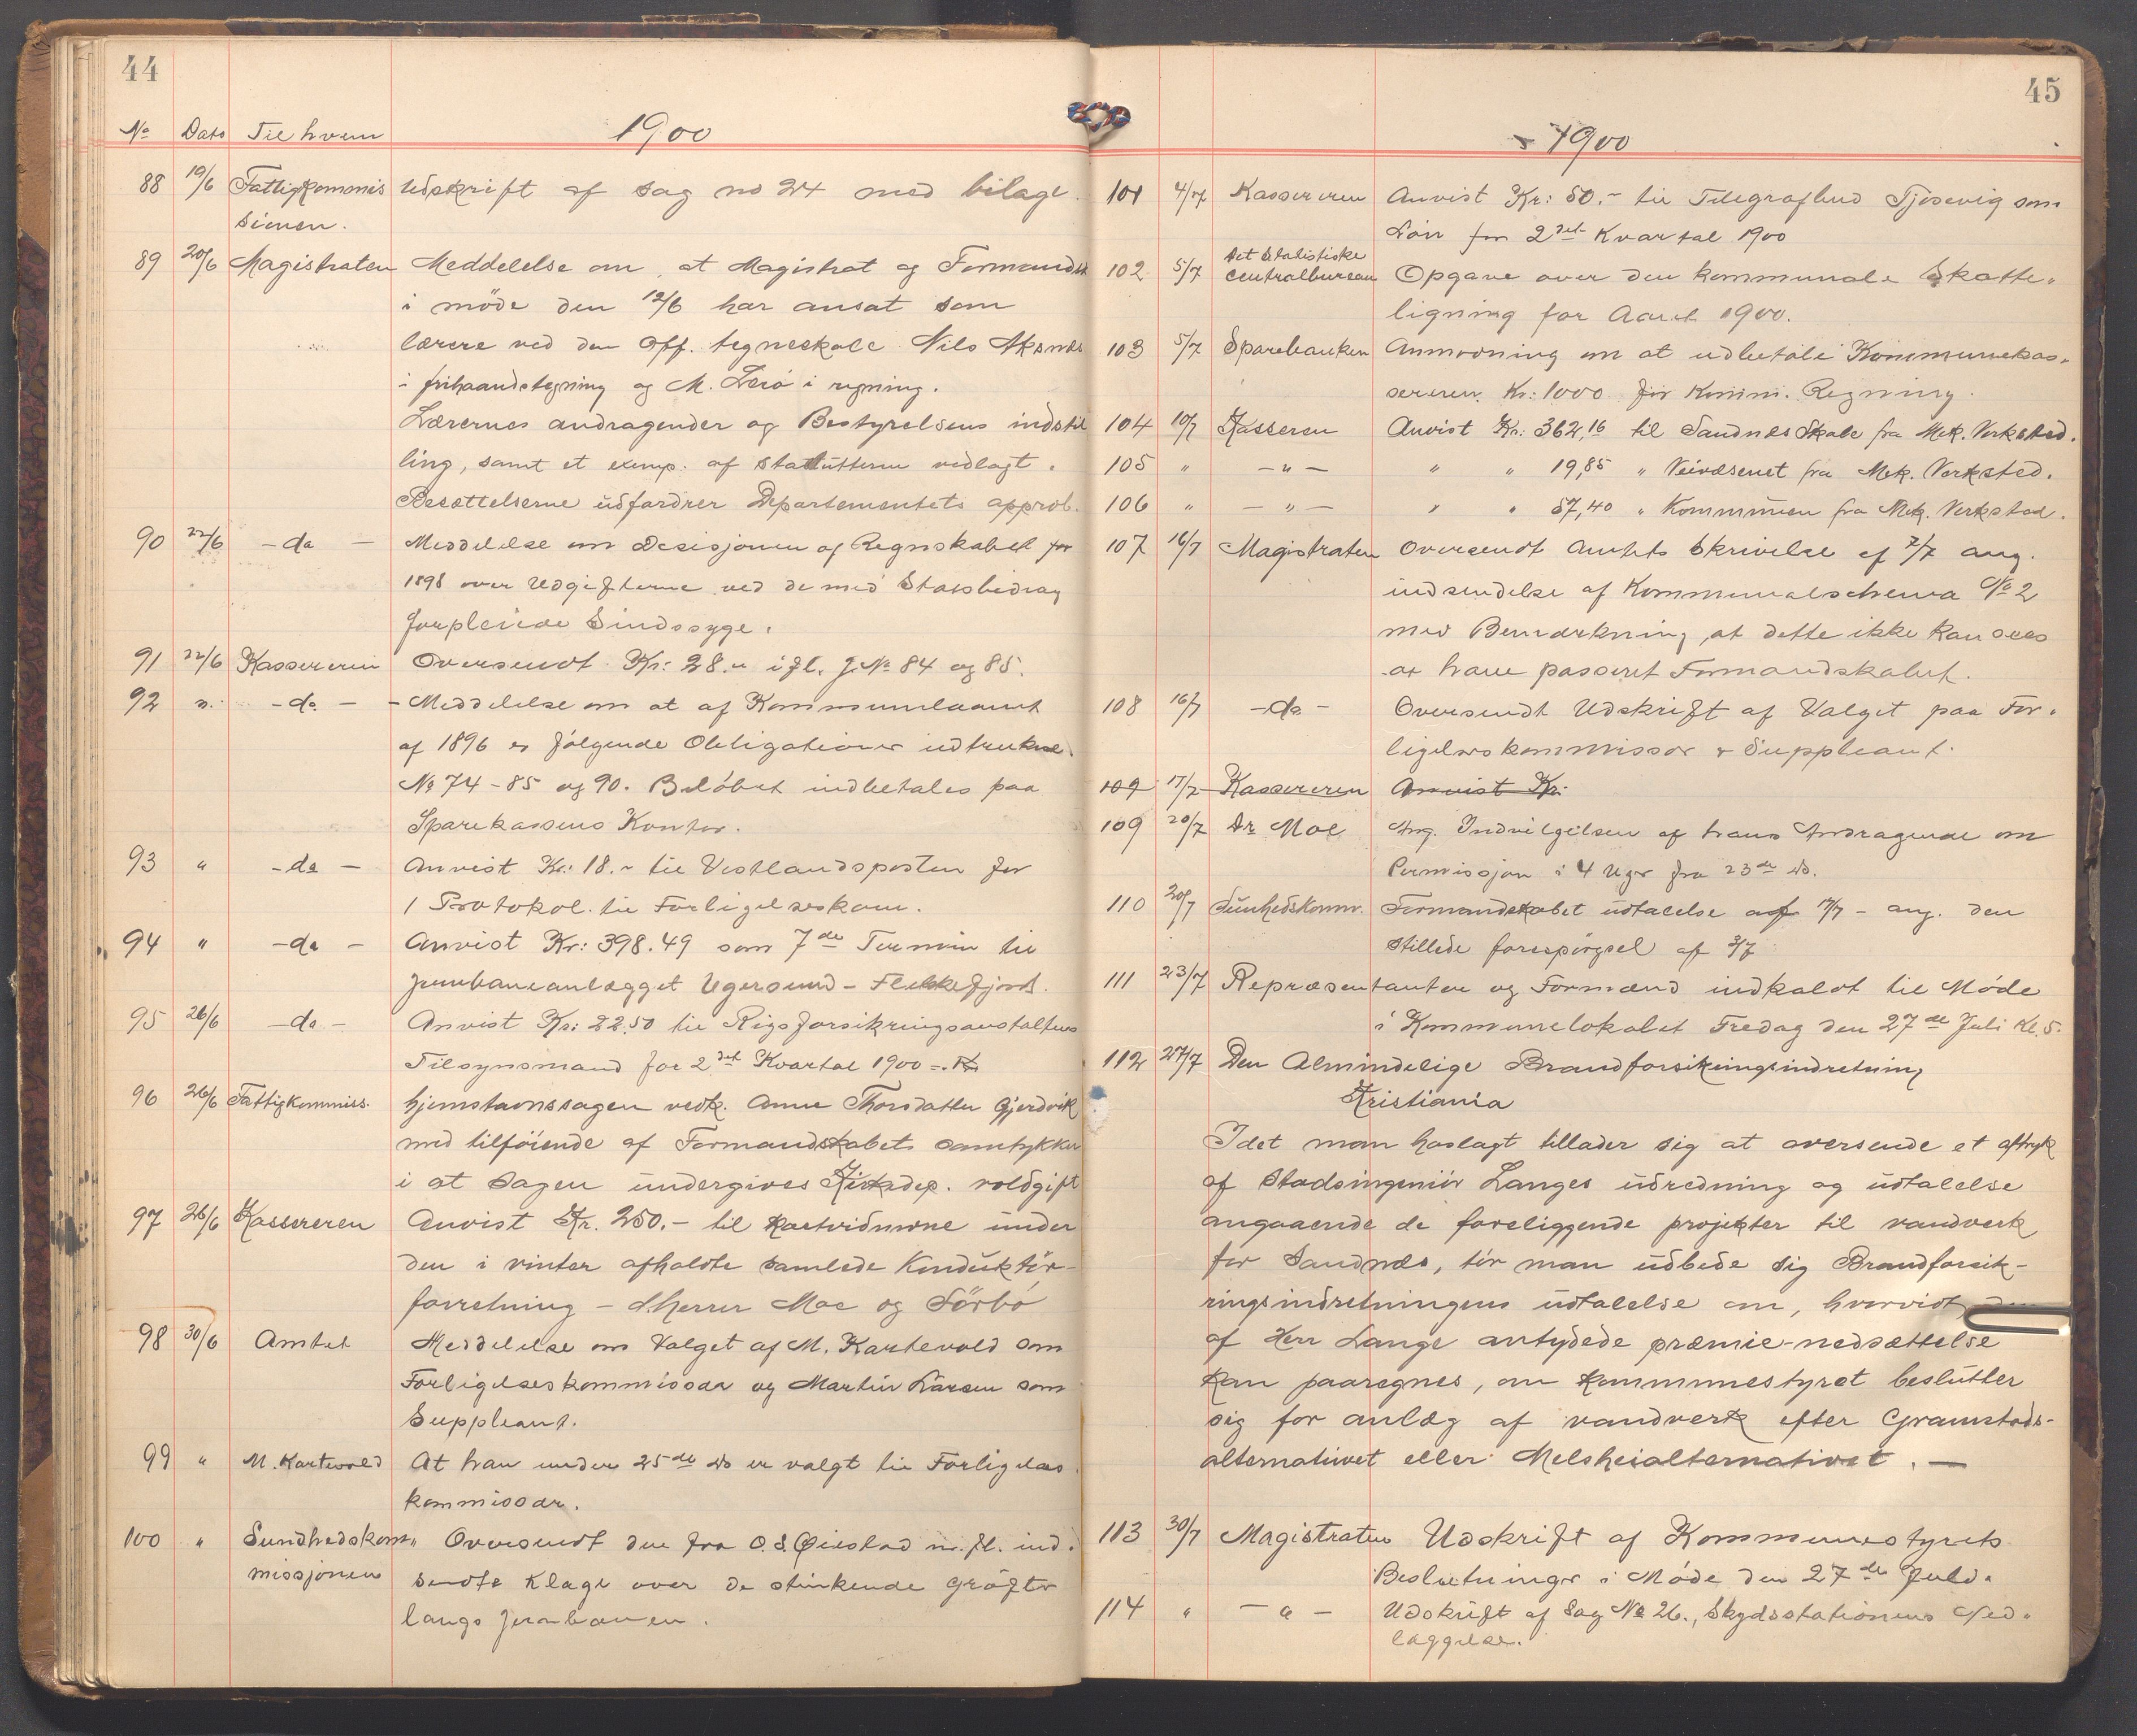 44
No Dato Til hvem 1900
88 19/6 Fattigkommis Udskrift af sag no 24 med bilage.
sionen.
89 20/6 Magistraten Meddelelse om, at Magistrat og Formandsk
i möde den 12/6 har ansat som
lærere ved den off. tegneskole Nils Aksnes
i frihaandstegning og M. Lerö i regning.
Lærernes andragender og Bestyrelsens indstil
ling, samt et exmp. af statutterne vedlagt.
Besættelserne udfordrer Departementets approb.
90 22/6 - do - Meddelelse om Desisjonen af Regnskabet for
1898 over Udgifterne ved de med Statsbidrag
forpleiede Sindssyge.
91 22/6 Kassereren Oversendt Kr: 28.- ifl. J.No 84 og 85.
92 " - do - - Meddelelse om at af Kommunelaanet
af 1896 er fölgende Obligationer udtrukne.
No 74 - 85 og 90. Belöbet indbetales paa
Sparekassens Kontor.
93 " - do - Anvist Kr: 18.- til Vestlandsposten for
1 Protokol til Forligelseskom.
94 " - do - Anvist Kr: 398.49 som 7de Termin til
Jernbaneanlægget Egersund - Flekkefjord.
95 26/6 - do - Anvist Kr: 22.50 til Rigsforsikringsanstaltens
Tilsynsmand for 2det Kvartal 1900 -.
96 26/6 Fattigkommiss. hjemstavnssagen vedk. Anne Thorsdatter Gjerdvik
med tilföiende af Formandskabets samtykke
i at sagen undergives Kirkedep. voldgift
97 26/6 Kassereren Anvist Kr. 250.- til kartvidnerne under
den i vinter afholdte samlede Konduktör-
forretning - d'herrer Moe og Sörbö
98 30/6 Amtet Meddelelse om Valget af M. Kartevold som
Forligelseskommissær og Martin Larsen som
Suppleant.
99 " M. Kartevold At han under 25de ds er valgt til Forligelses
kommissær.
100 " Sundhedskom" Oversendt den fra O. S. Øiestad m. fl. ind.
missjonen sendte Klage over de stinkende Gröfter
langs Jernbanen.
45
1900
101 4/7 Kassereren Anvist Kr: 50.- til Telegrafbud Tjosevig som
Lön for 2det Kvartal 1900
Det Statistiske
102 5/7 Centralbureau Opgave over den kommunale Skatte-
ligning for Aaret 1900.
103 5/7 Sparebanken Anmodning om at udbetale Kommunekas-
sereren Kr: 1000 for Komm. Regning.
104 10/7 Kasseren Anvist Kr. 362,16 til Sandnes Skole fra Mek. Verksted.
105 " - " - " " 19,85 " Veivæsenet fra Mek. Verksted.
106 " - " - " " 57,40 " Kommunen fra Mek. Verksted.
107 16/7 Magistraten Oversendt Amtets Skrivelse af 7/7 ang.
indsendelse af Kommunalschema No 2
med Bemærkning, at dette ikke kan sees
at have passeret Formandskabet.
108 16/7 - do - Oversendt Udskrift af Valget paa For-
ligelseskommissær & Suppleant.
109 17/7 Kassereren Anvist Kr:
109 20/7 Dr Moe Ang. Indvilgelsen af hans Andragende om
Permissjon i 4 Uger fra 23de ds.
110 20/7 Sundhedskomm. Formandskabet udtalelse af 17/7 - ang. den
stillede forespörgsel af 3/7
111 23/7 Repræsentanter og Formænd indkaldt til Möde
i Kommunelokalet Fredag den 27de Juli Kl. 5.
112 27/7 Den Almindelige Brandforsikringsindretning
Kristiania
Idet man hoslagt tillader sig at oversende et aftryk
af Stadsingeniör Langes udredning og udtalelse
angaaende de foreliggende projekter til vandverk
for Sandnes, tör man udbede sig Brandforsik-
ringsindretningens udtalelse om, hvorvidt den
af Herr Lange antydede præmie-nedsættelse
kan paaregnes, om kommunestyret beslutter
sig for anlæg af vandverk efter Gramstads-
alternativet eller Melsheialternativet. -
113 30/7 Magistraten Udskrift af Kommunestyrets
Beslutninger i Möde den 27de Juli.
114 " - " - Udskrift af Sag No 26., Skydsstationens Ned-
læggelse.